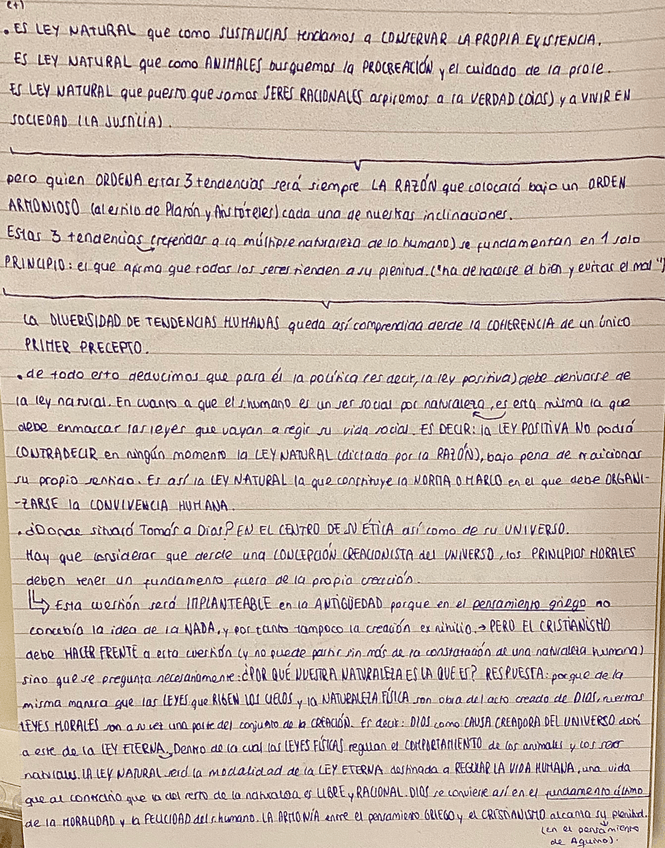 (+)
. ES LEY NATURAL que como SUSTANCIAS tendamos a CONSERVAR LA PROPIA EXISTENCIA.
ES LEY NATURAL que como ANIMALES busquemos la PROCREACIÓN y el cuidado de la prole.
ES LEY NATURAL que puesto que somos SERES RACIONALES aspiremos a la VERDAD (DIOS) y a VIVIR EN
SOCIEDAD (LA JUSTICIA).
pero quien ORDENA estas 3 tendencias será siempre LA RAZÓN que colocará bajo un ORDEN
ARMONIOSO (al estilo de Platón y Aristóteles) cada una de nuestras inclinaciones.
Estas 3 tendencias (referidas a la múltiple naturaleza de lo humano) se fundamentan en 1 solo
PRINCIPIO: el que afirma que todos los seres tienden a su plenitud. ("ha de hacerse el bien y evitar el mal")
La DIVERSIDAD DE TENDENCIAS HUMANAS queda así comprendida desde la COHERENCIA de un único
PRIMER PRECEPTO.
. de todo esto deducimos que para él la política (es decir, la ley positiva) debe derivarse de
la ley natural. En cuanto a que el s.humano es un ser social por naturaleza, es esta misma la que
debe enmarcar las leyes que vayan a regir su vida social. ES DECIR: la LEY POSITIVA NO podrá
CONTRADECIR en ningún momento la LEY NATURAL (dictada por la RAZÓN), bajo pena de traicionar
su propio sentido. Es así la LEY NATURAL la que constituye la NORMA O MARCO en el que debe ORGANI-
-ZARSE la CONVIVENCIA HUMANA.
. ¿Donde situará Tomás a Dios? EN EL CENTRO DE SU ÉTICA así como de su UNIVERSO.
Hay que considerar que desde una CONCEPCIÓN CREACIONISTA del UNIVERSO, los PRINCIPIOS MORALES
deben tener un fundamento fuera de la propia creación.
↳ Esta cuestión será IMPLANTEABLE en la ANTIGÜEDAD porque en el pensamiento griego no
concebía la idea de la NADA, y por tanto tampoco la creación ex nihilio. → PERO EL CRISTIANISMO
debe HACER FRENTE a esta cuestión (y no puede partir sin más de la constatación de una naturaleza humana)
sino que se pregunta necesariamente: ¿POR QUÉ NUESTRA NATURALEZA ES LA QUE ES? RESPUESTA: porque de la
misma manera que las LEYES que RIGEN LOS CIELOS y la NATURALEZA FÍSICA son obra del acto creado de DIOS, nuestras
LEYES MORALES son a su vez una parte del conjunto de la CREACIÓN. Es decir: DIOS como CAUSA CREADORA DEL UNIVERSO dotó
a este de la LEY ETERNA, Dentro de la cual las LEYES FÍSICAS regulan el COMPORTAMIENTO de los animales y los seres
naturales. LA LEY NATURAL será la modalidad de la LEY ETERNA destinada a REGULAR LA VIDA HUMANA, una vida
que al contrario que la del resto de la naturaleza, es LIBRE y RACIONAL. DIOS se convierte así en el fundamento último
de la MORALIDAD y la FELICIDAD del s.humano. LA ARMONÍA entre el pensamiento GRIEGO y el CRISTIANISMO alcanza su plenitud.
(en el pensamiento
de Aquino).